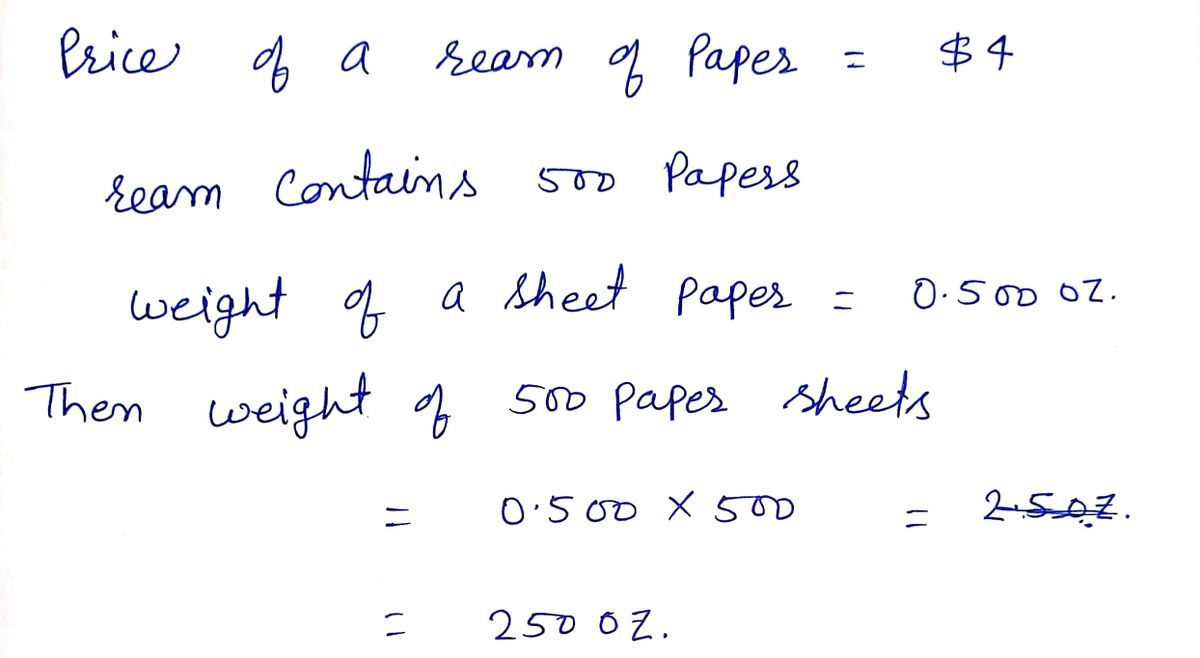 Price of a ream of Paper = $4
ream Contains 500 Papers
weight of a sheet paper = 0.500 oz.
Then weight of 500 paper sheets
= 0.500 × 500 = 2.5 oz.
= 250 oz.